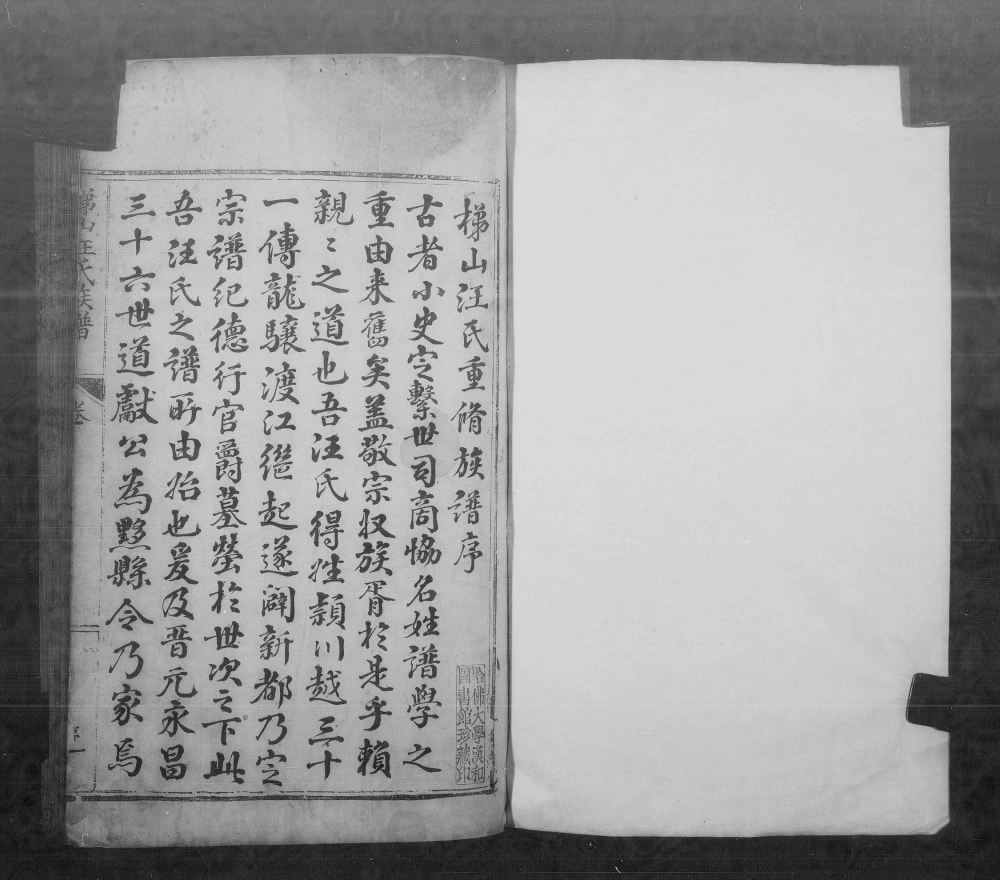 梯山汪氏重脩族譜序
古者小史㝎繫世司商恊名姓譜學之
重由来舊矣盖敬宗収族胥於是乎賴
親〻之道也吾汪氏得姓潁川越三十
一傳龍驤渡江繼起遂闢新都乃㝎
宗譜紀德行官爵墓塋於世次之下此
吾汪氏之譜所由始也爰及晋元永昌
三十六世道獻公為黟縣令乃家焉
哈佛大學漢和
圖書館珍藏印
梯山汪氏族譜
卷
序一